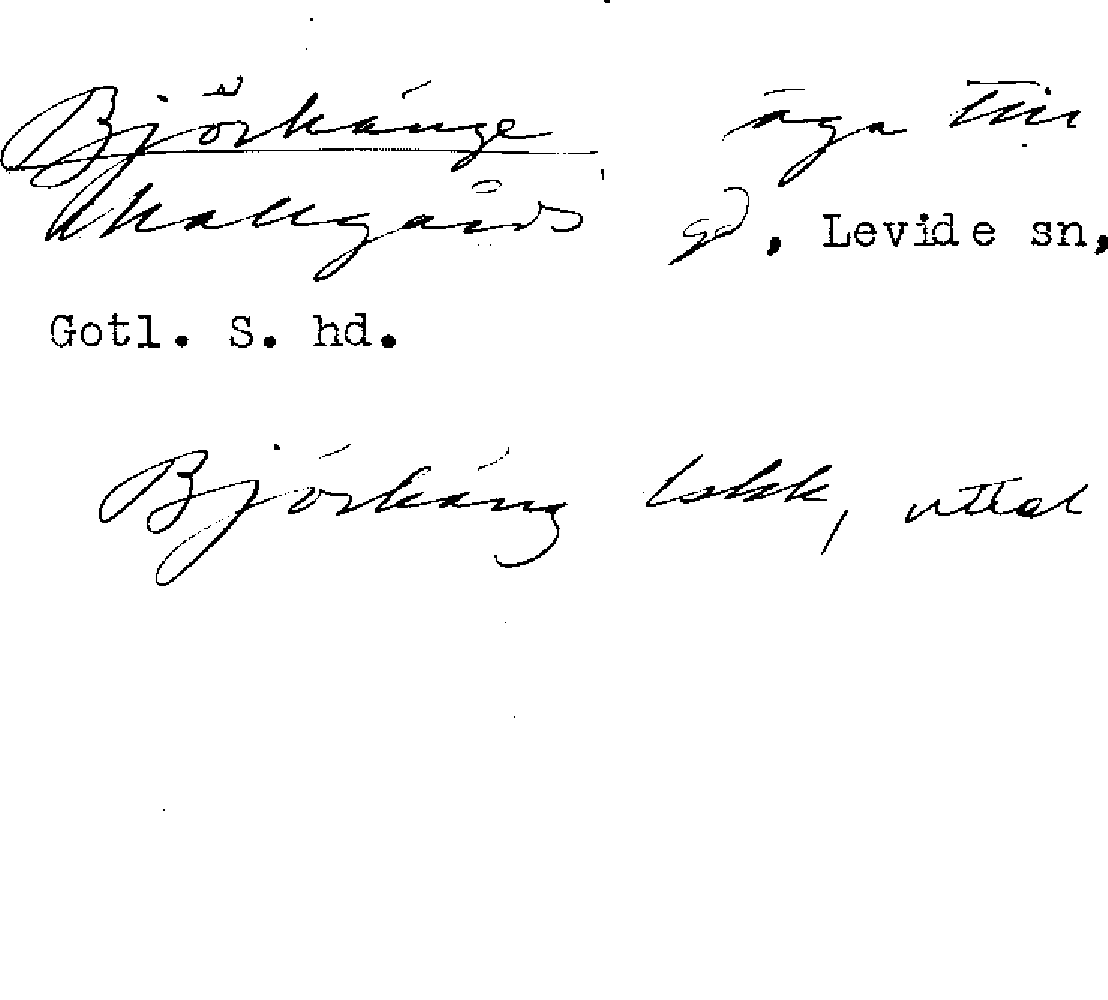 Björkänge äga till
gd, Levide sn,
Gotl. S. hd.
Björkäng lskk, uttal